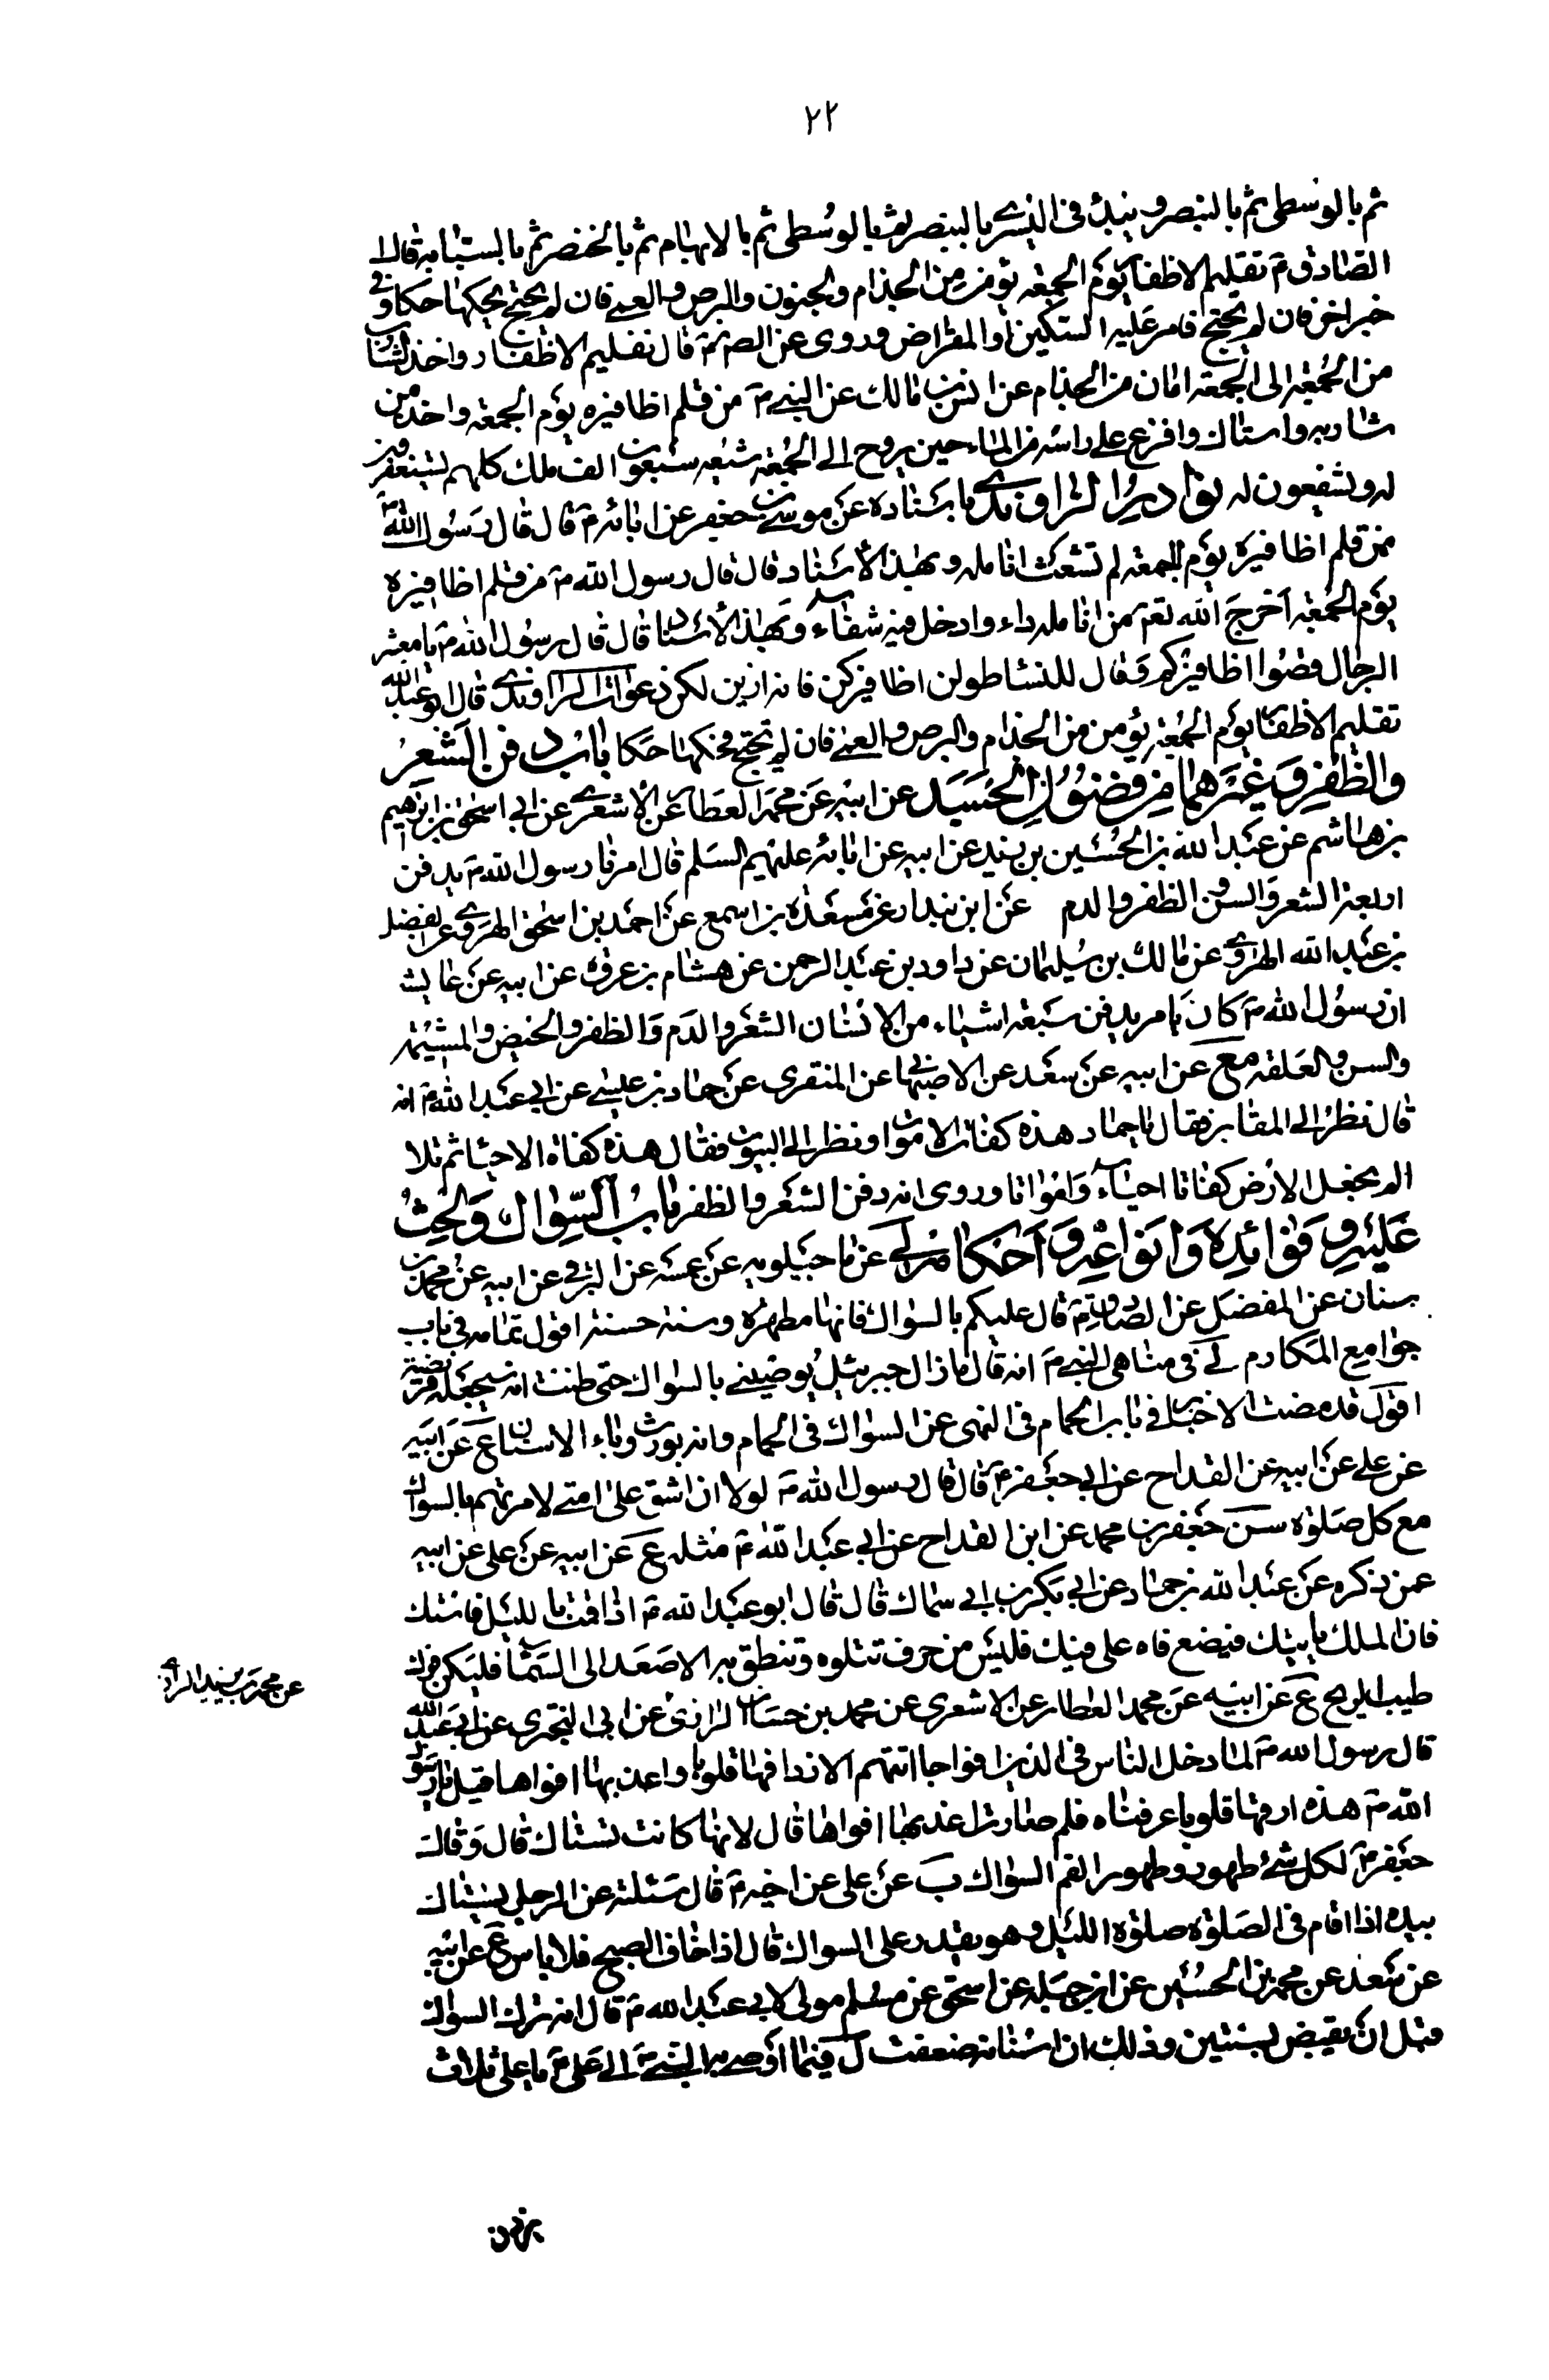 ٢٢
ثم بالوسطى ثم بالبنصر ويبدأ في اليسرى بالبنصر ثم بالوسطى ثم بالابهام ثم بالخنصر ثم بالسبابة وقال
الصادق ع تقليم الاظفار يوم الجمعة يؤمن من الجذام والجنون والبرص والعمى فان لم تحتج فحكها حكا وفي
خبر اخر فان لم تحتج فامر عليها السكين او المقراض وروى عن الصم ع قال تقليم الاظفار واخذ الشارب
من الجمعة الى الجمعة امان من الجذام عن انس بن مالك عن النبي ص من قلم اظافيره يوم الجمعة واخذ من
شاربه واستاك وافرغ على راسه من الماء حين يروح الى الجمعة شيعه سبعون الف ملك كلهم يستغفرون
له ويشفعون له نوادر الراوندى باسناده عن موسى بن جعفر عن ابائه ع قال قال رسول الله ص
من قلم اظافيره يوم الجمعة لم تشعث انامله وبهذا الاسناد قال قال رسول الله ص من قلم اظافيره
يوم الجمعة اخرج الله تعم من انامله داء وادخل فيه شفاء وبهذا الاسناد قال قال رسول الله ص يا معشر
الرجال قصوا اظافيركم وقال للنساء طولن اظافيركن فانه ازين لكن دعوات الراوندى قال ابو عبد الله
تقليم الاظفار يوم الجمعة يؤمن من الجذام والبرص والعمى فان لم تحتج فحكها حكا باب دفن الشعر
والظفر وغيرهما من فضول الجسد عن ابيه عن محمد العطار عن الاشعرى عن ابي اسحق ابراهيم
بن هاشم عن عبد الله بن الحسين بن يزيد عن ابيه عن ابائه عليهم السلم قال امرنا رسول الله ص بدفن
اربعة الشعر والسن والظفر والدم عن ابن بندار عن مسعدة بن اسمع عن احمد بن اسحق الهروى عن الفضل
بن عبد الله الهروى عن مالك بن سليمان عن داود بن عبد الرحمن عن هشام بن عروة عن ابيه عن عايشة
ان رسول الله ص كان يامر بدفن سبعة اشياء من الانسان الشعر والدم والظفر والحيض والمشيمة
والسن والعلقة مع عن ابيه عن سعد عن الاصبهاني عن المنقرى عن حماد بن عيسى عن ابي عبد الله ع انه
قال نظر الى المقابر فقال يا حماد هذه كفات الاموات ونظر الى البيوت فقال هذه كفاة الاحياء ثم تلا
الم نجعل الارض كفاتا احياء وامواتا وروى انه دفن الشعر والظفر باب السواك والحث
عليه وفوائده وانواعه واحكامه لى عن ماجيلويه عن عمه عن البرقي عن ابيه عن محمد بن
سنان عن المفضل عن الصادق ع قال عليكم بالسواك فانها مطهرة وسنة حسنة اقول تمامه في باب
جوامع المكارم لى في مناهى النبي ص انه قال ما زال جبرئيل يوصيني بالسواك حتى ظننت انه سيجعله فريضة
اقول قد مضت الاخبار في باب الحمام في النهى عن السواك في الحمام وانه يورث وباء الاسنان ع عن ابيه
عن علي عن ابيه عن القداح عن ابي جعفر ع قال قال رسول الله ص لولا ان اشق على امتي لامرتهم بالسواك
مع كل صلوة سن جعفر بن محمد عن ابن القداح عن ابي عبد الله ع مثله ع عن ابيه عن على عن ابيه
عمن ذكره عن عبد الله بن حماد عن ابي بكر بن ابي سماك قال قال ابو عبد الله ع اذا قمت بالليل فاستك
فان الملك ياتيك فيضع فاه على فيك فليس من حرف تتلوه وتنطق به الا صعد الى السماء فليكن فوك
طيب الريح ع عن ابيه عن محمد العطار عن الاشعرى عن محمد بن حسان الرازى عن ابي البخترى عن ابي عبد الله
عن محمد بن يزيد الرازى
قال رسول الله ص لما دخل الناس في الدين افواجا اتتهم الازد ارقها قلوبا واعذبها افواها قيل يا رسول
الله ص هذه ارقها قلوبا عرفناه فلم صارت اعذبها افواها قال لانها كانت تستاك قال وقال
جعفر ع لكل شئ طهور وطهور الفم السواك ب عن على عن اخيه ع قال سئلته عن الرجل يستاك
بيده اذا قام في الصلوة صلوة الليل وهو يقدر على السواك قال اذا خاف الصبح فلا باس ع عن ابيه
عن سعد عن محمد بن الحسين عن ابن جبلة عن اسحق عن مسلم مولى لابي عبد الله ع قال انه ترك السواك
قبل ان يقبض بسنتين وذلك ان اسنانه ضعفت ل فيما اوصى به النبي ص الى على ع يا على ثلاث
يزدن